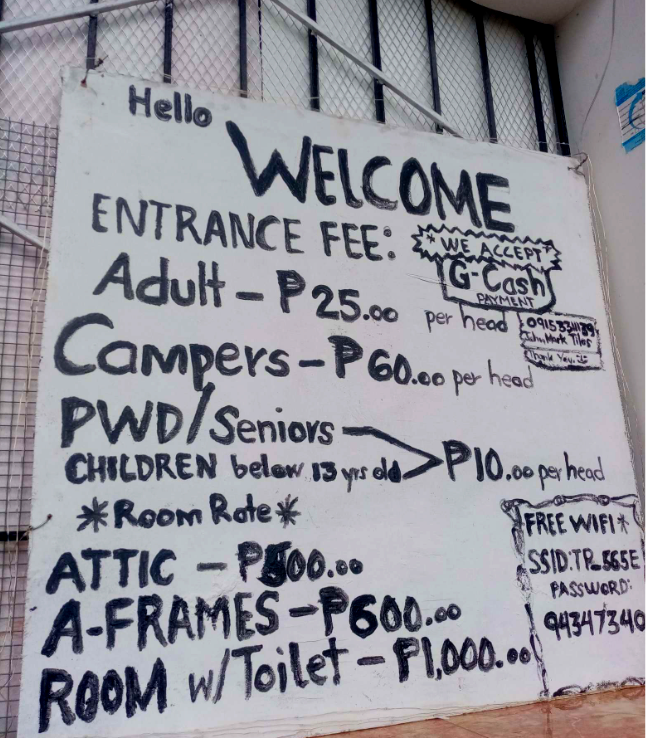 Hello
WELCOME
ENTRANCE FEE:
"WE ACCEPT"
G-Cash
PAYMENT
Adult - ₱25.00 per head
John Mark
Thank You.
Campers - ₱60.00 per head
PWD/Seniors
CHILDREN below 13 yrs old
₱10.00 per head
*Room Rate*
ATTIC - ₱500.00
A-FRAMES - ₱600.00
ROOM w/Toilet - ₱1,000.00
FREE WIFI*
SSID:TP_565E
PASSWORD:
94347340